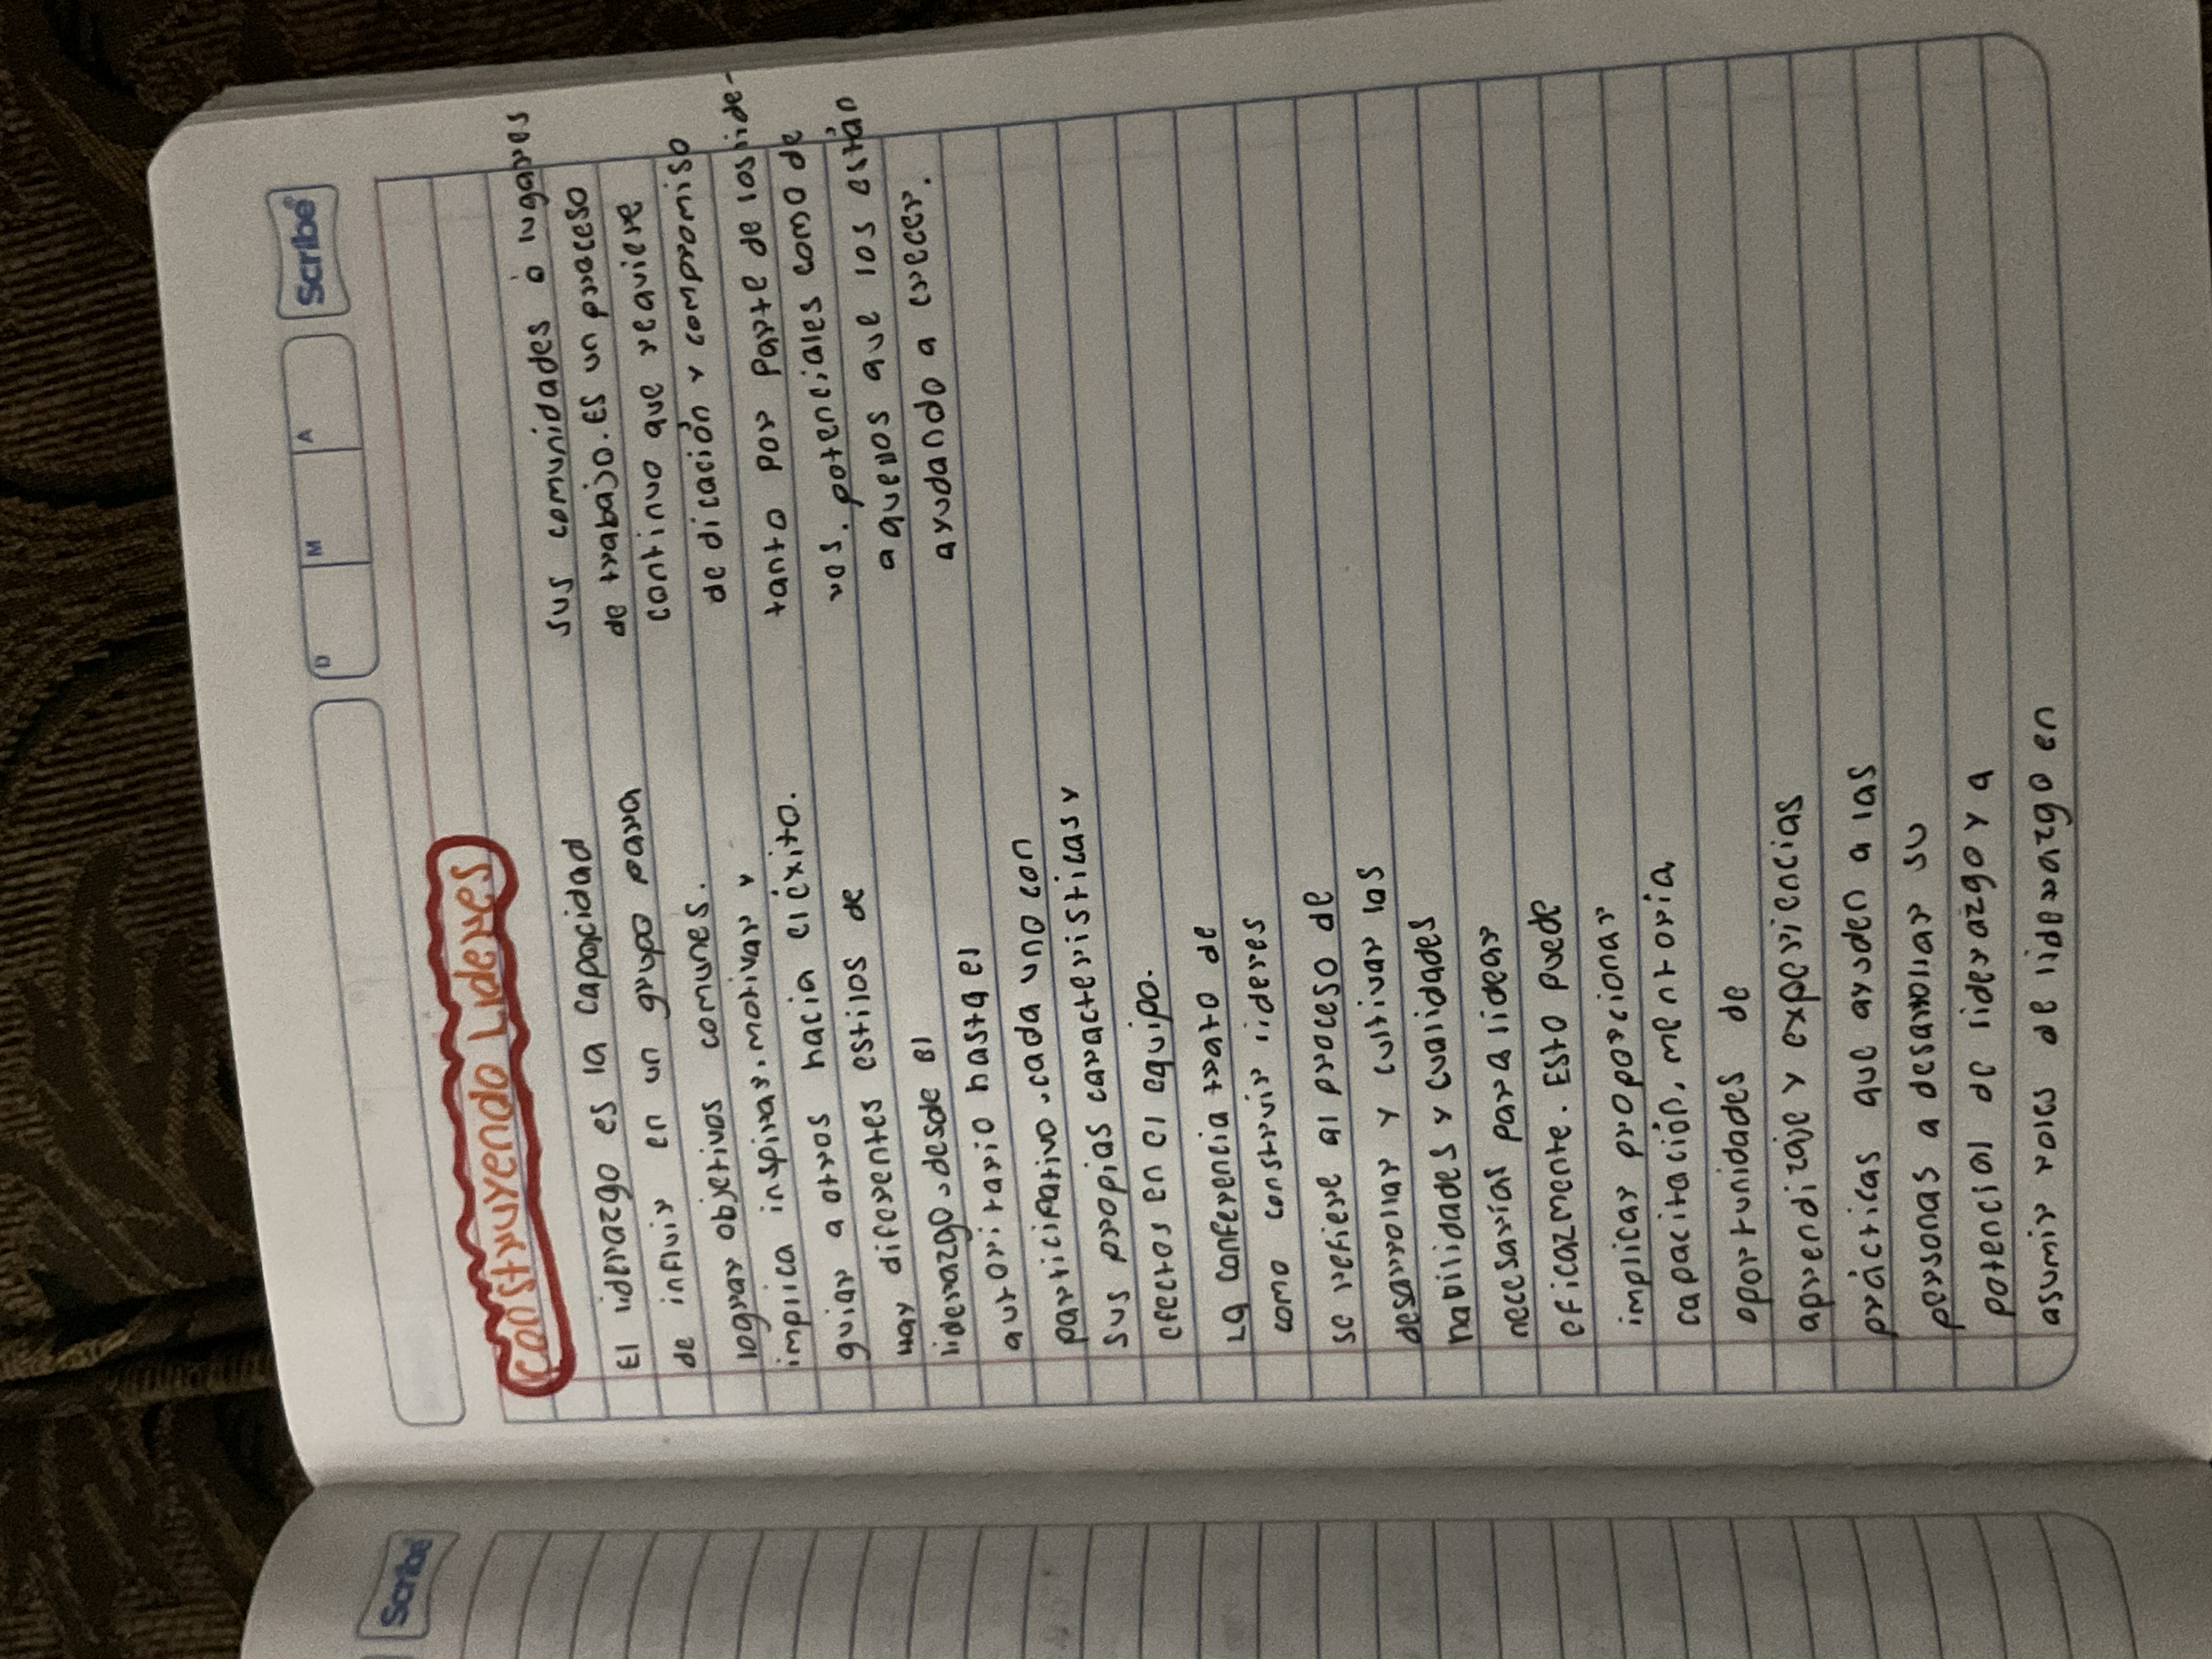 Scribe
D M A
Construyendo Líderes
El liderazgo es la capacidad
de influir en un grupo para
lograr objetivos comunes.
implica inspirar, motivar y
guiar a otros hacia el éxito.
Hay diferentes estilos de
liderazgo, desde el
autoritario hasta el
participativo, cada uno con
sus propias características y
efectos en el equipo.
La conferencia trato de
como construir lideres
se refiere al proceso de
desarrollar y cultivar las
habilidades y cualidades
necesarias para lidear
eficazmente. Esto puede
implicar proporcionar
capacitación, mentoria,
oportunidades de
aprendizaje y experiencias
prácticas que ayuden a las
personas a desarrollar su
potencial de liderazgo y a
asumir roles de liderazgo en
sus comunidades o lugares
de trabajo. Es un proceso
continuo que requiere
dedicación y compromiso
tanto por parte de los lide-
res. potenciales como de
aquellos que los están
ayudando a crecer.
Scribe